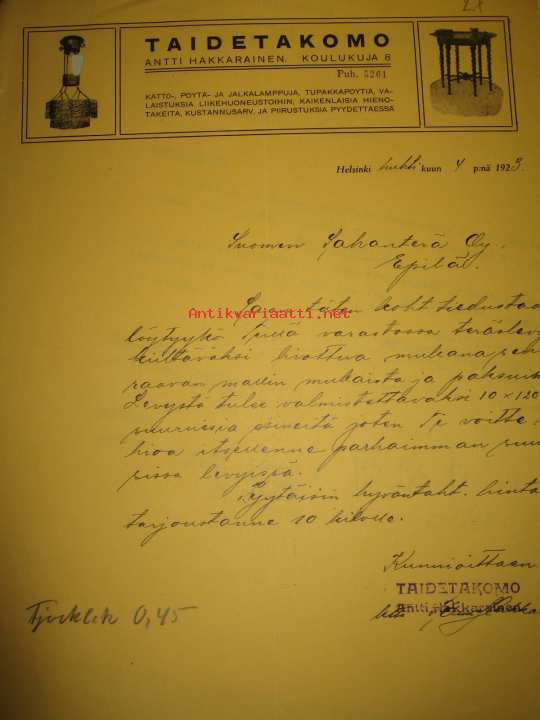 TAIDETAKOMO
ANTTI HAKKARAINEN. KOULUKUJA 8
Puh. 5261
KATTO-, PÖYTÄ- JA JALKALAMPPUJA, TUPAKKAPÖYTIÄ, VA-
LAISTUKSIA LIIKEHUONEUSTOIHIN, KAIKENLAISIA HIENO-
TAKEITA, KUSTANNUSARV. JA PIIRUSTUKSIA PYYDETTÄESSÄ
Helsinki huhti kuun 4 p:nä 1923.
Suomen Sahanterä Oy.
Epilä.
Saan täten koht. tiedustaa
löytyykö Teillä varastossa teräslevy
kiiltäväksi hiottua mukana seu
raavan mallin mukaista ja paksuu
Levystä tulee valmistettavaksi 10 x 120
suuruisia esineitä joten Te voitte
hioa itsellenne parhaimman suu
sissa levyissä.
Pyytäisin hyväntaht. hinta
tarjoustanne 10 kilolle.
Kunnioittaen
TAIDETAKOMO
Antti Hakkarainen
Tjocklek 0,45
Antikvariaatti.net